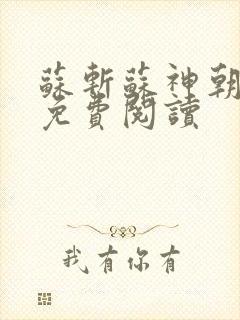 蘇斬蘇神朝
免費閱讀
我有你有